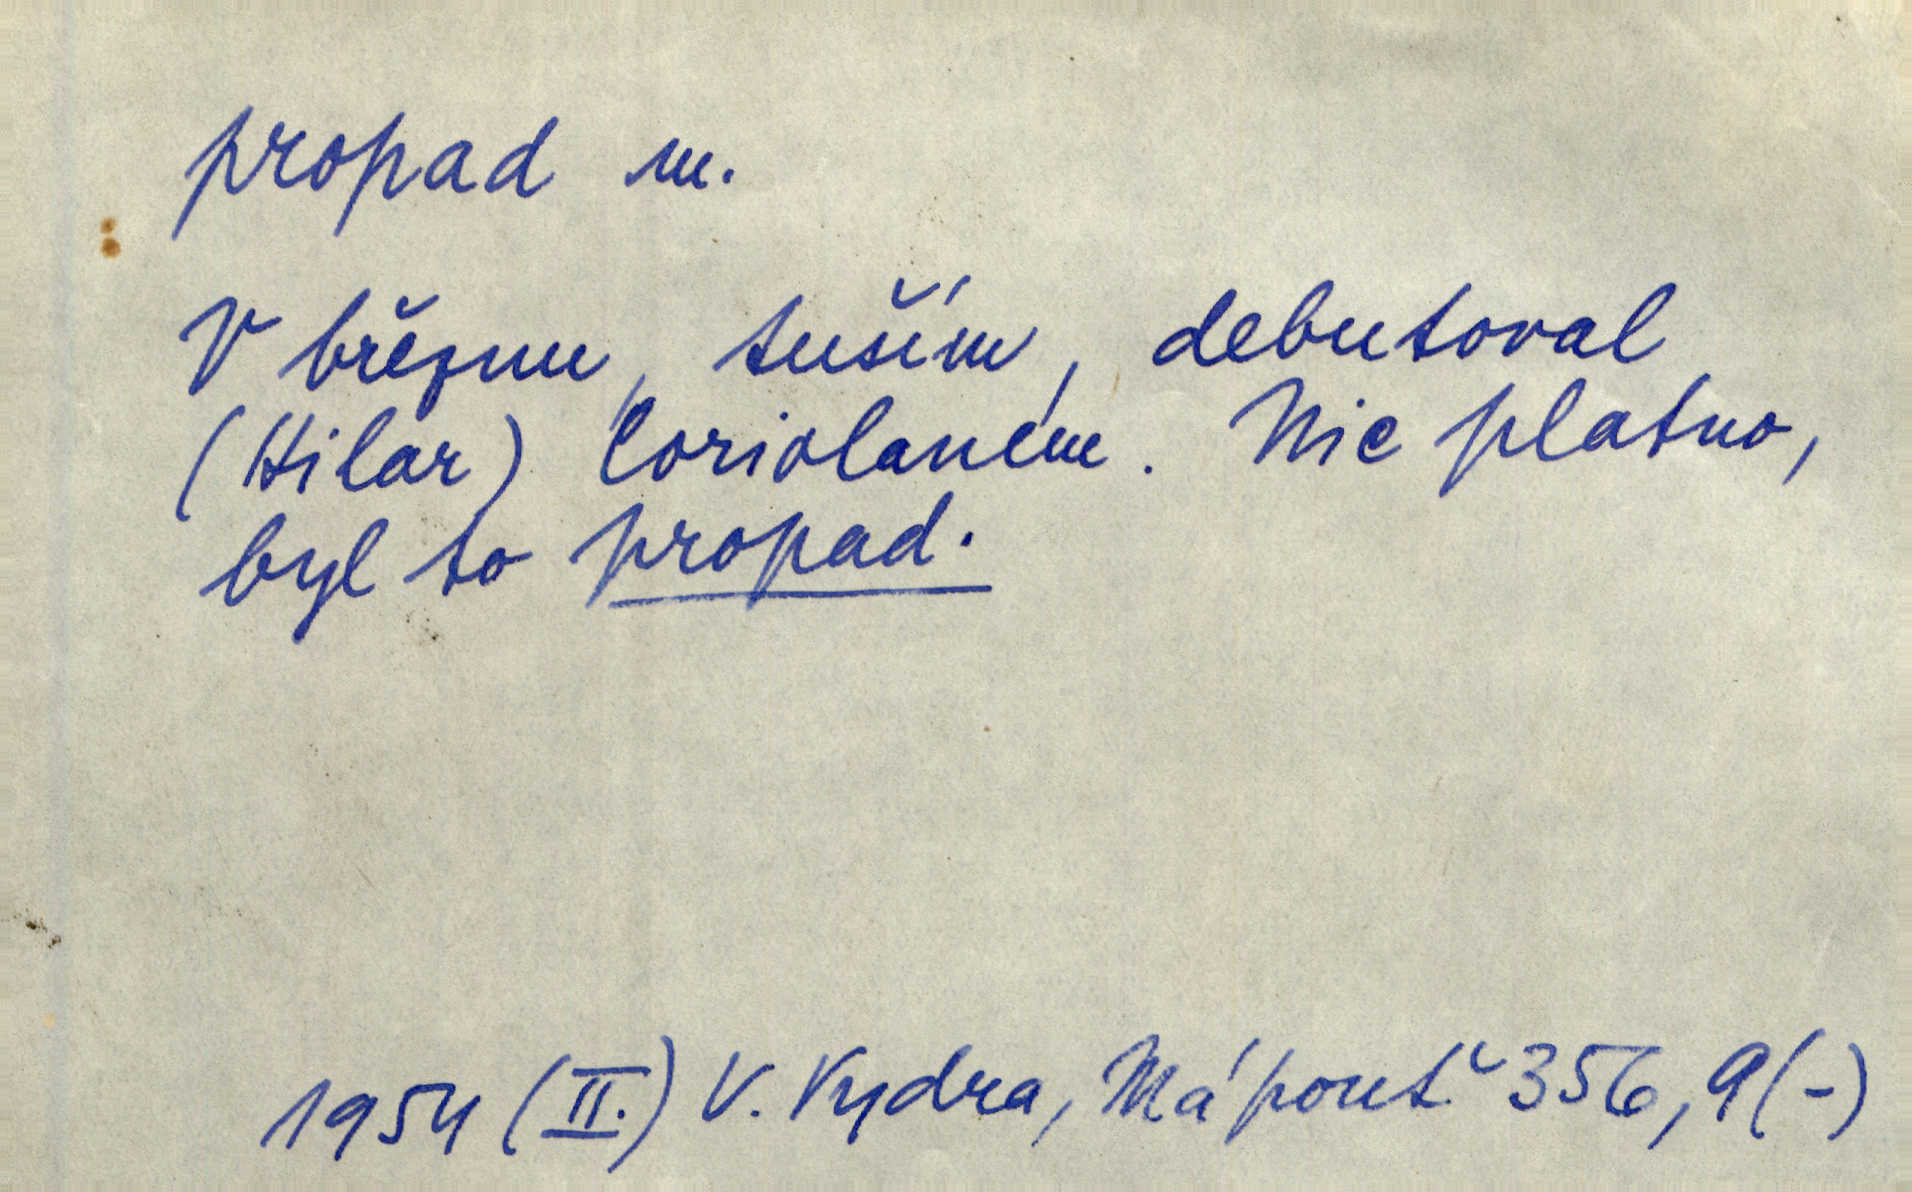 propad m.
V březnu, tuším, debutoval
(Hilar) Coriolaném. Nic platno,
byl to propad.
1954 (II.) V. Vydra, Má pouť 356, 9 (-)